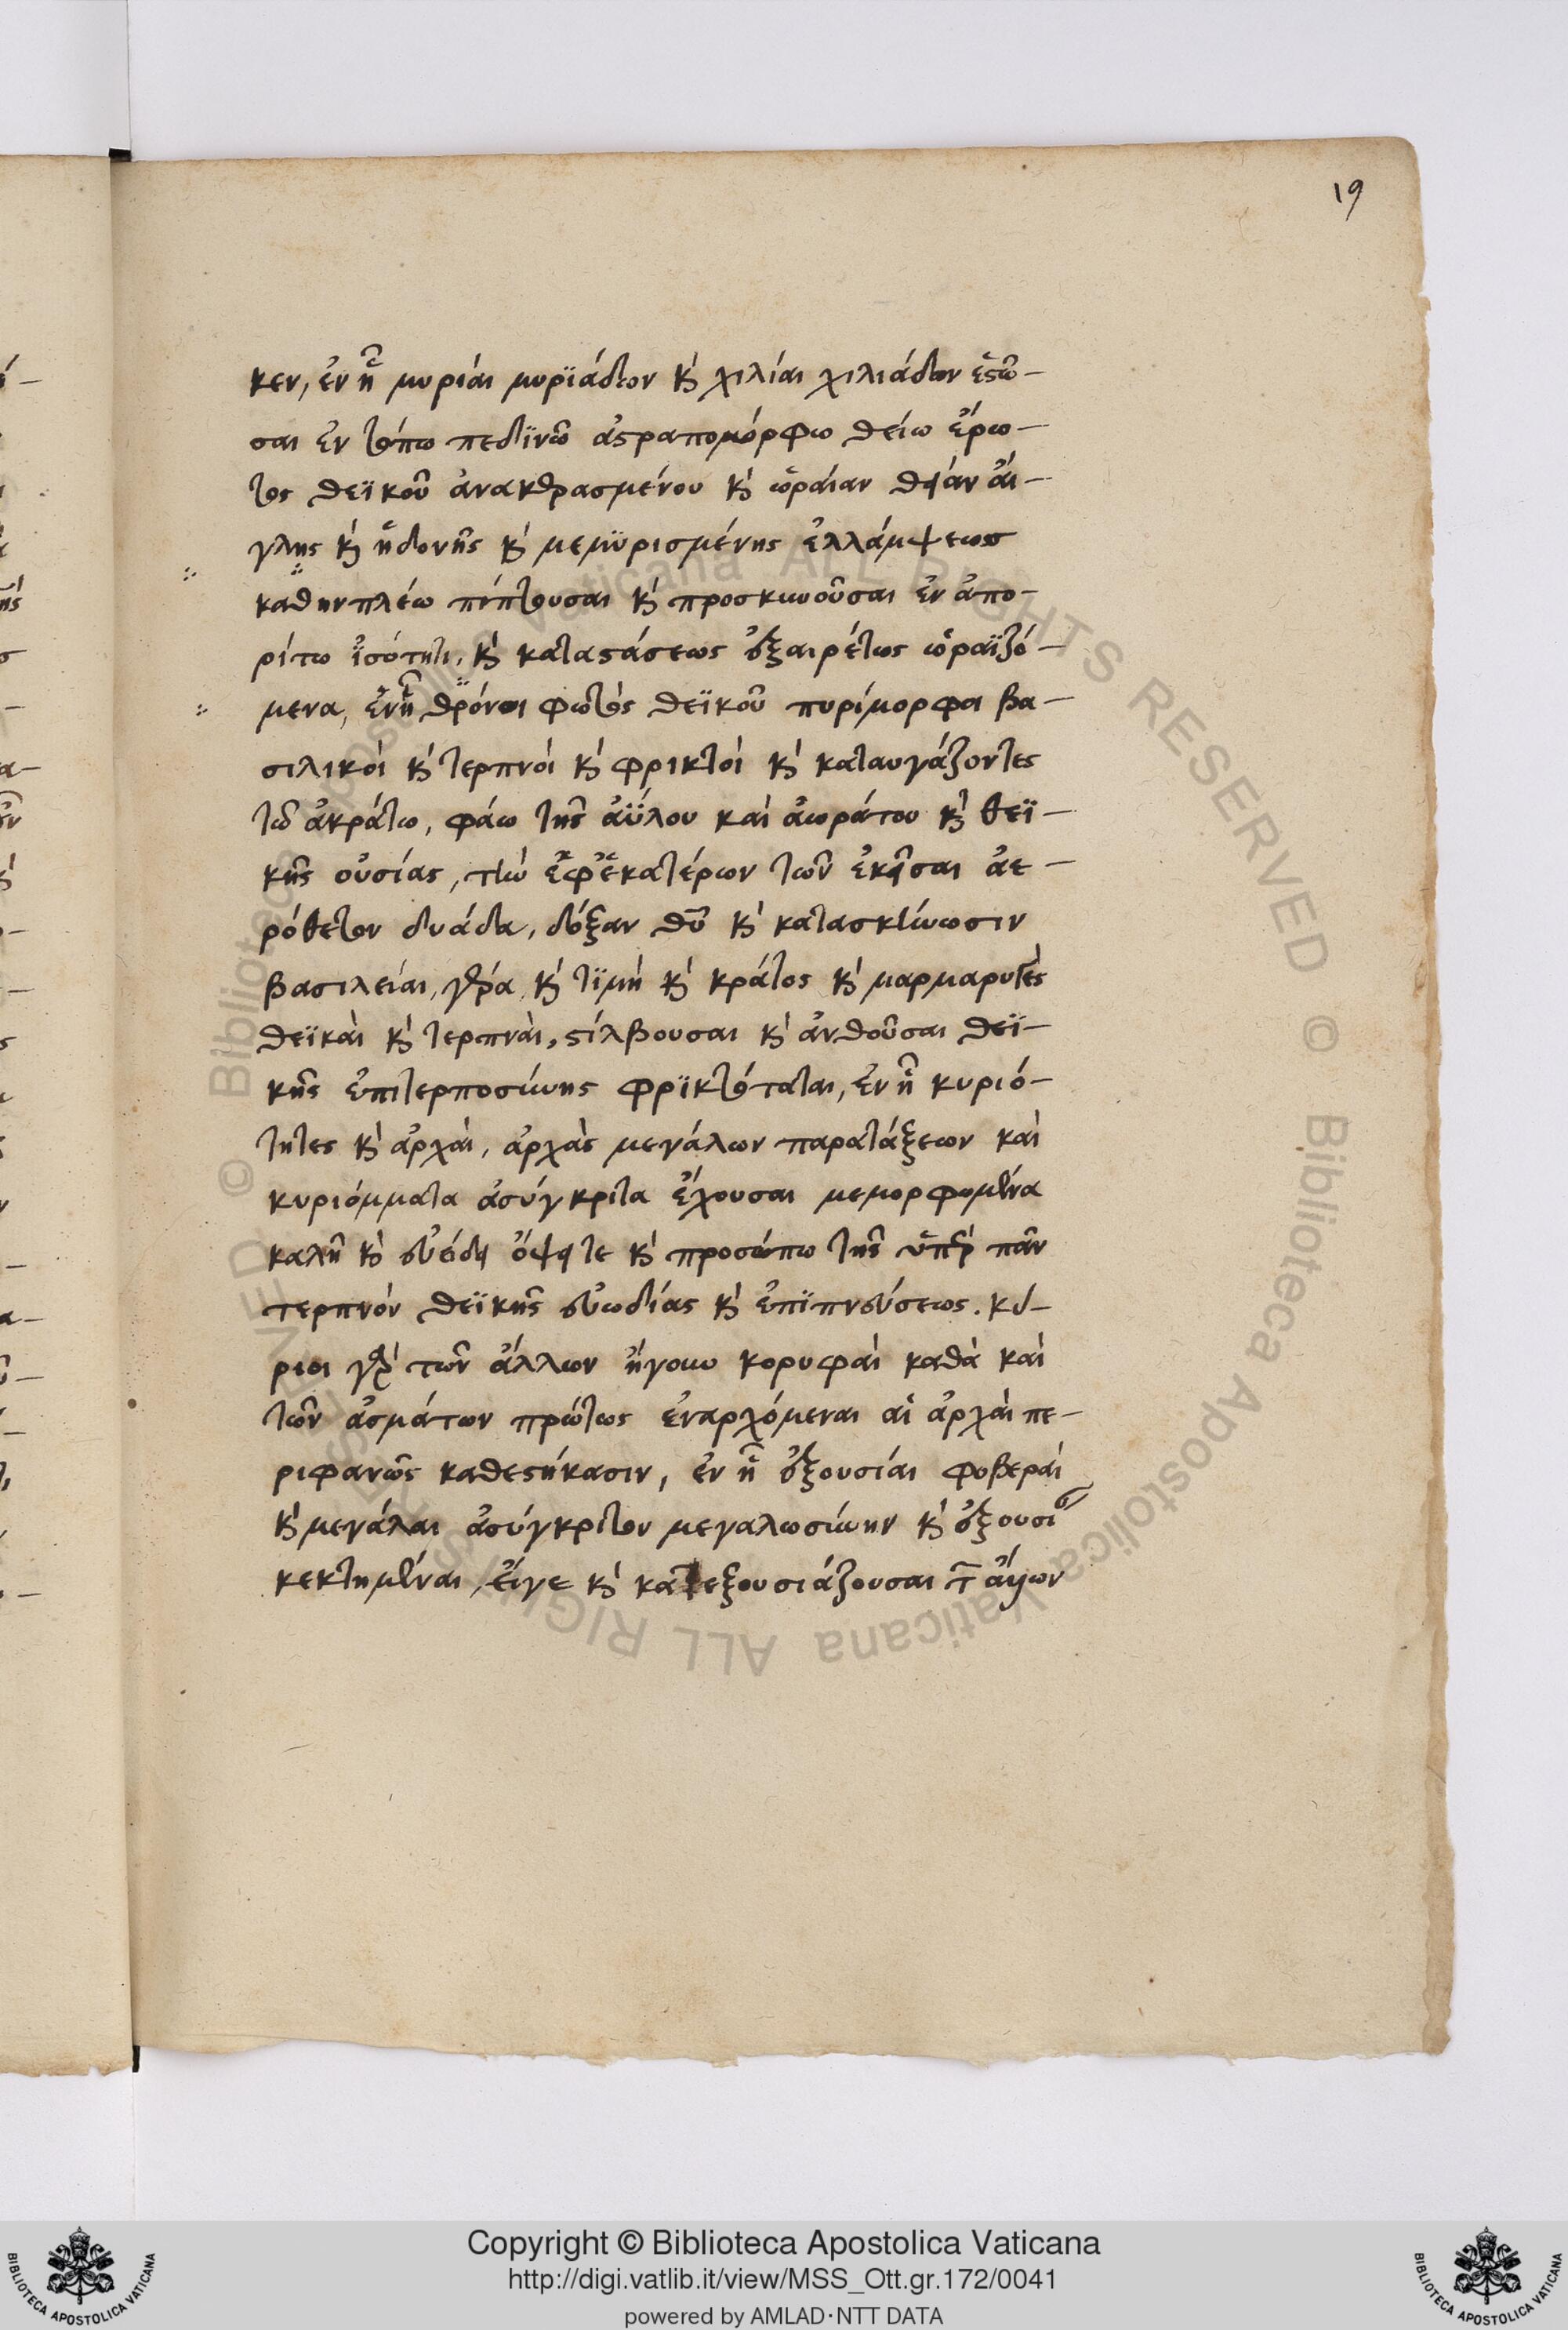 19
κεν, ἐν ἧ μυρίαι μυρϊάδων κ̀ χιλίαι χιλιάδων ἑςῶ-
σαι ἐν τόπω πεδϊνῶ ἀςραπομόρφω θείω ἔρω-
τος θεϊκοῦ ἀνακερασμένου κ̀ ὡραίαν θείαν ἄι-
γλης κ̀ ἡδονῆς κ̀ μεμϋρισμένης ἐλλάμψεως
καθην πλέω πίπτουσαι κ̀ προσκυνοῦσαι ἐν ἀπο-
ρίτω ἰσότητι, κ̀ καταςάσεως ἐξαιρέτως ὡραϊζό-
μενα, ἐν ἧ θρόνοι φωτὸς θεϊκοῦ πυρίμορφοι βα-
σιλικοὶ κ̀ τερπνοὶ κ̀ φρικτοὶ κ̀ καταυγάζοντες
τῶ ἀκράτω, φάω τῆς ἀΰλου καὶ ἀωράτου κ̀ θεϊ-
κῆς οὐσίας, τὴν ἐφ ἑκατέρων τῶν ἐκεῖσαι ἀε-
ρόθετον δυάδα, δόξαν θυ κ̀ κατασκήνωσιν
βασιλείαι, κ̀ τϊμὴ κ̀ κράτος κ̀ μαρμαρυγὲς
θεϊκαὶ κ̀ τερπναὶ, ςίλβουσαι κ̀ ἀνθοῦσαι θεϊ-
κῆς ἐπιτερποσύνης φρϊκτόταται, ἐν ἧ κυριό-
τητες κ̀ ἀρχαὶ, ἀρχὰς μεγάλων παρατάξεων καὶ
κυριόμματα ἀσύγκριτα ἔχουσαι μεμορφομένα
καλῆ κ̀ εὐειδῆ ὄψει τε κ̀ προσώπω τῆς ὑπὲρ πᾶν
τερπνὸν θεϊκῆς εὐωδίας κ̀ ἐπϊπνεύσεως. κύ-
ριοι γὰρ τῶν ἄλλων ἤγουν κορυφαὶ καθὰ καὶ
τῶν ἀσμάτων πρώτως ἐναρχόμεναι αἱ ἀρχαὶ πε-
ριφανῶς καθεςήκασιν, ἐν ἧ ἐξουσίαι φοβεραὶ
κ̀ μεγάλαι ἀσύγκριτον μεγαλωσύνην κ̀ ἐξουσίας
κεκτημέναι, εἴγε κ̀ κατεξουσιάζουσαι τ ἁγίων
Copyright © Biblioteca Apostolica Vaticana
http://digi.vatlib.it/view/MSS_Ott.gr.172/0041
powered by AMLAD·NTT DATA